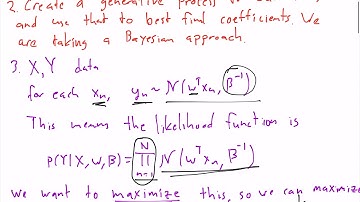 2. Create a generative process
and use that to best find coefficients. We
are taking a Bayesian approach.
3. X, Y data
for each xₙ, yₙ ~ N(wᵀxₙ, β⁻¹)
This means the likelihood function is
p(Y|X,w,β) = ∏ₙ₌₁ᴺ N(wᵀxₙ, β⁻¹)
we want to maximize this, so we can maximize